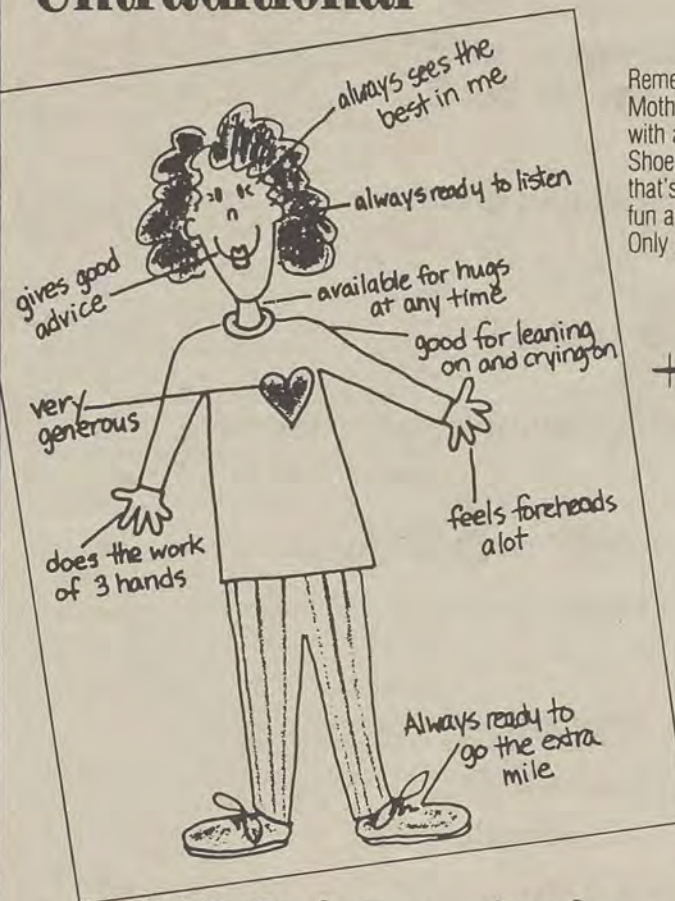 Untraditional
always sees the
best in me
always ready to listen
gives good
advice
available for hugs
at any time
good for leaning
on and crying on
very
generous
feels foreheads
alot
does the work
of 3 hands
Always ready to
go the extra
mile
Reme
Moth
with a
Shoe
that's
fun a
Only